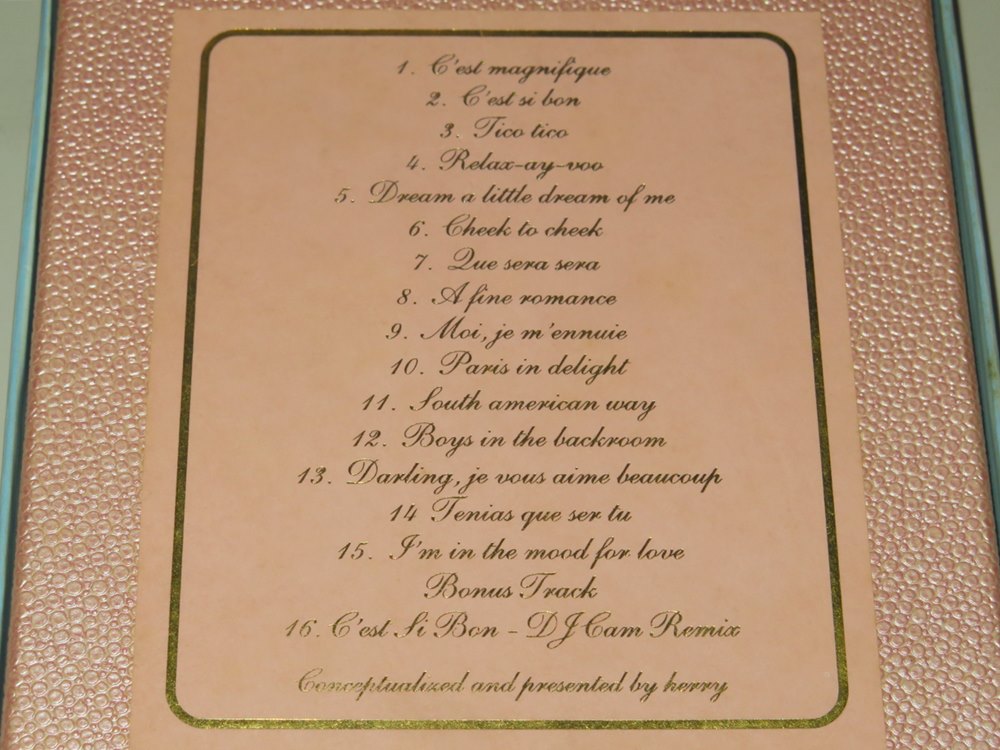 1. C'est magnifique
2. C'est si bon
3. Tico tico
4. Relax-ay-voo
5. Dream a little dream of me
6. Cheek to cheek
7. Que sera sera
8. A fine romance
9. Moi, je m'ennuie
10. Paris in delight
11. South american way
12. Boys in the backroom
13. Darling, je vous aime beaucoup
14 Tenias que ser tu
15. I'm in the mood for love
Bonus Track
16. C'est Si Bon - DJ Cam Remix
Conceptualized and presented by herry